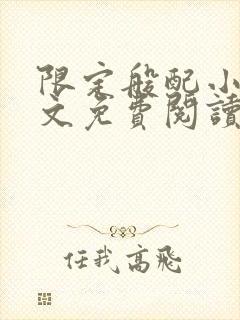 限定般配小
文免費閱讀
任我高飛